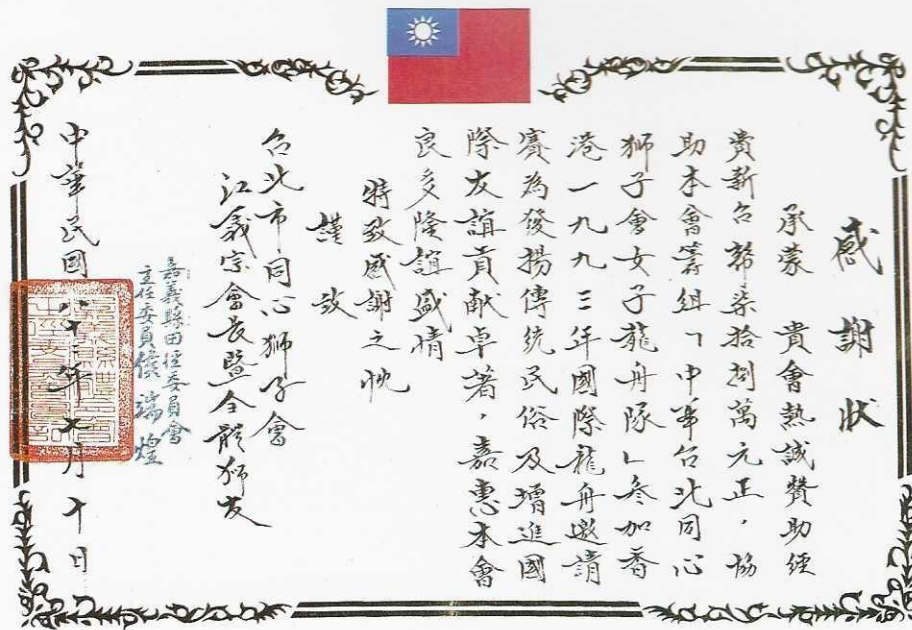 感謝狀
承蒙　貴會熱誠贊助經
費新台幣柒拾捌萬元正，協
助本會籌組「中華台北同心
獅子會女子龍舟隊」參加香
港一九九三年國際龍舟邀請
賽為發揚傳統民俗及增進國
際友誼貢献卓著，嘉惠本會
良多隆誼盛情
特致感謝之忱
謹致
台北市同心獅子會
江義宗會長暨全體獅友
嘉義縣田徑委員會
主任委員侯瑞煌
中華民國八十二年七月十日